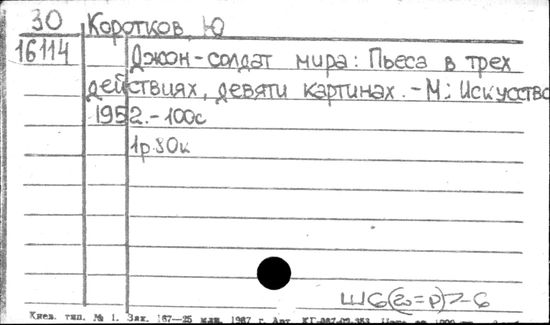 30 Коротков, Ю
16114 Джон-солдат мира: Пьеса в трех
действиях, девяти картинах.-М.: Искусство
1952.-100с
1р.30к
Ш6(2о=Р)7-6
Киев. тип. № 1. Зак. 167—25 млн. 1967 г.